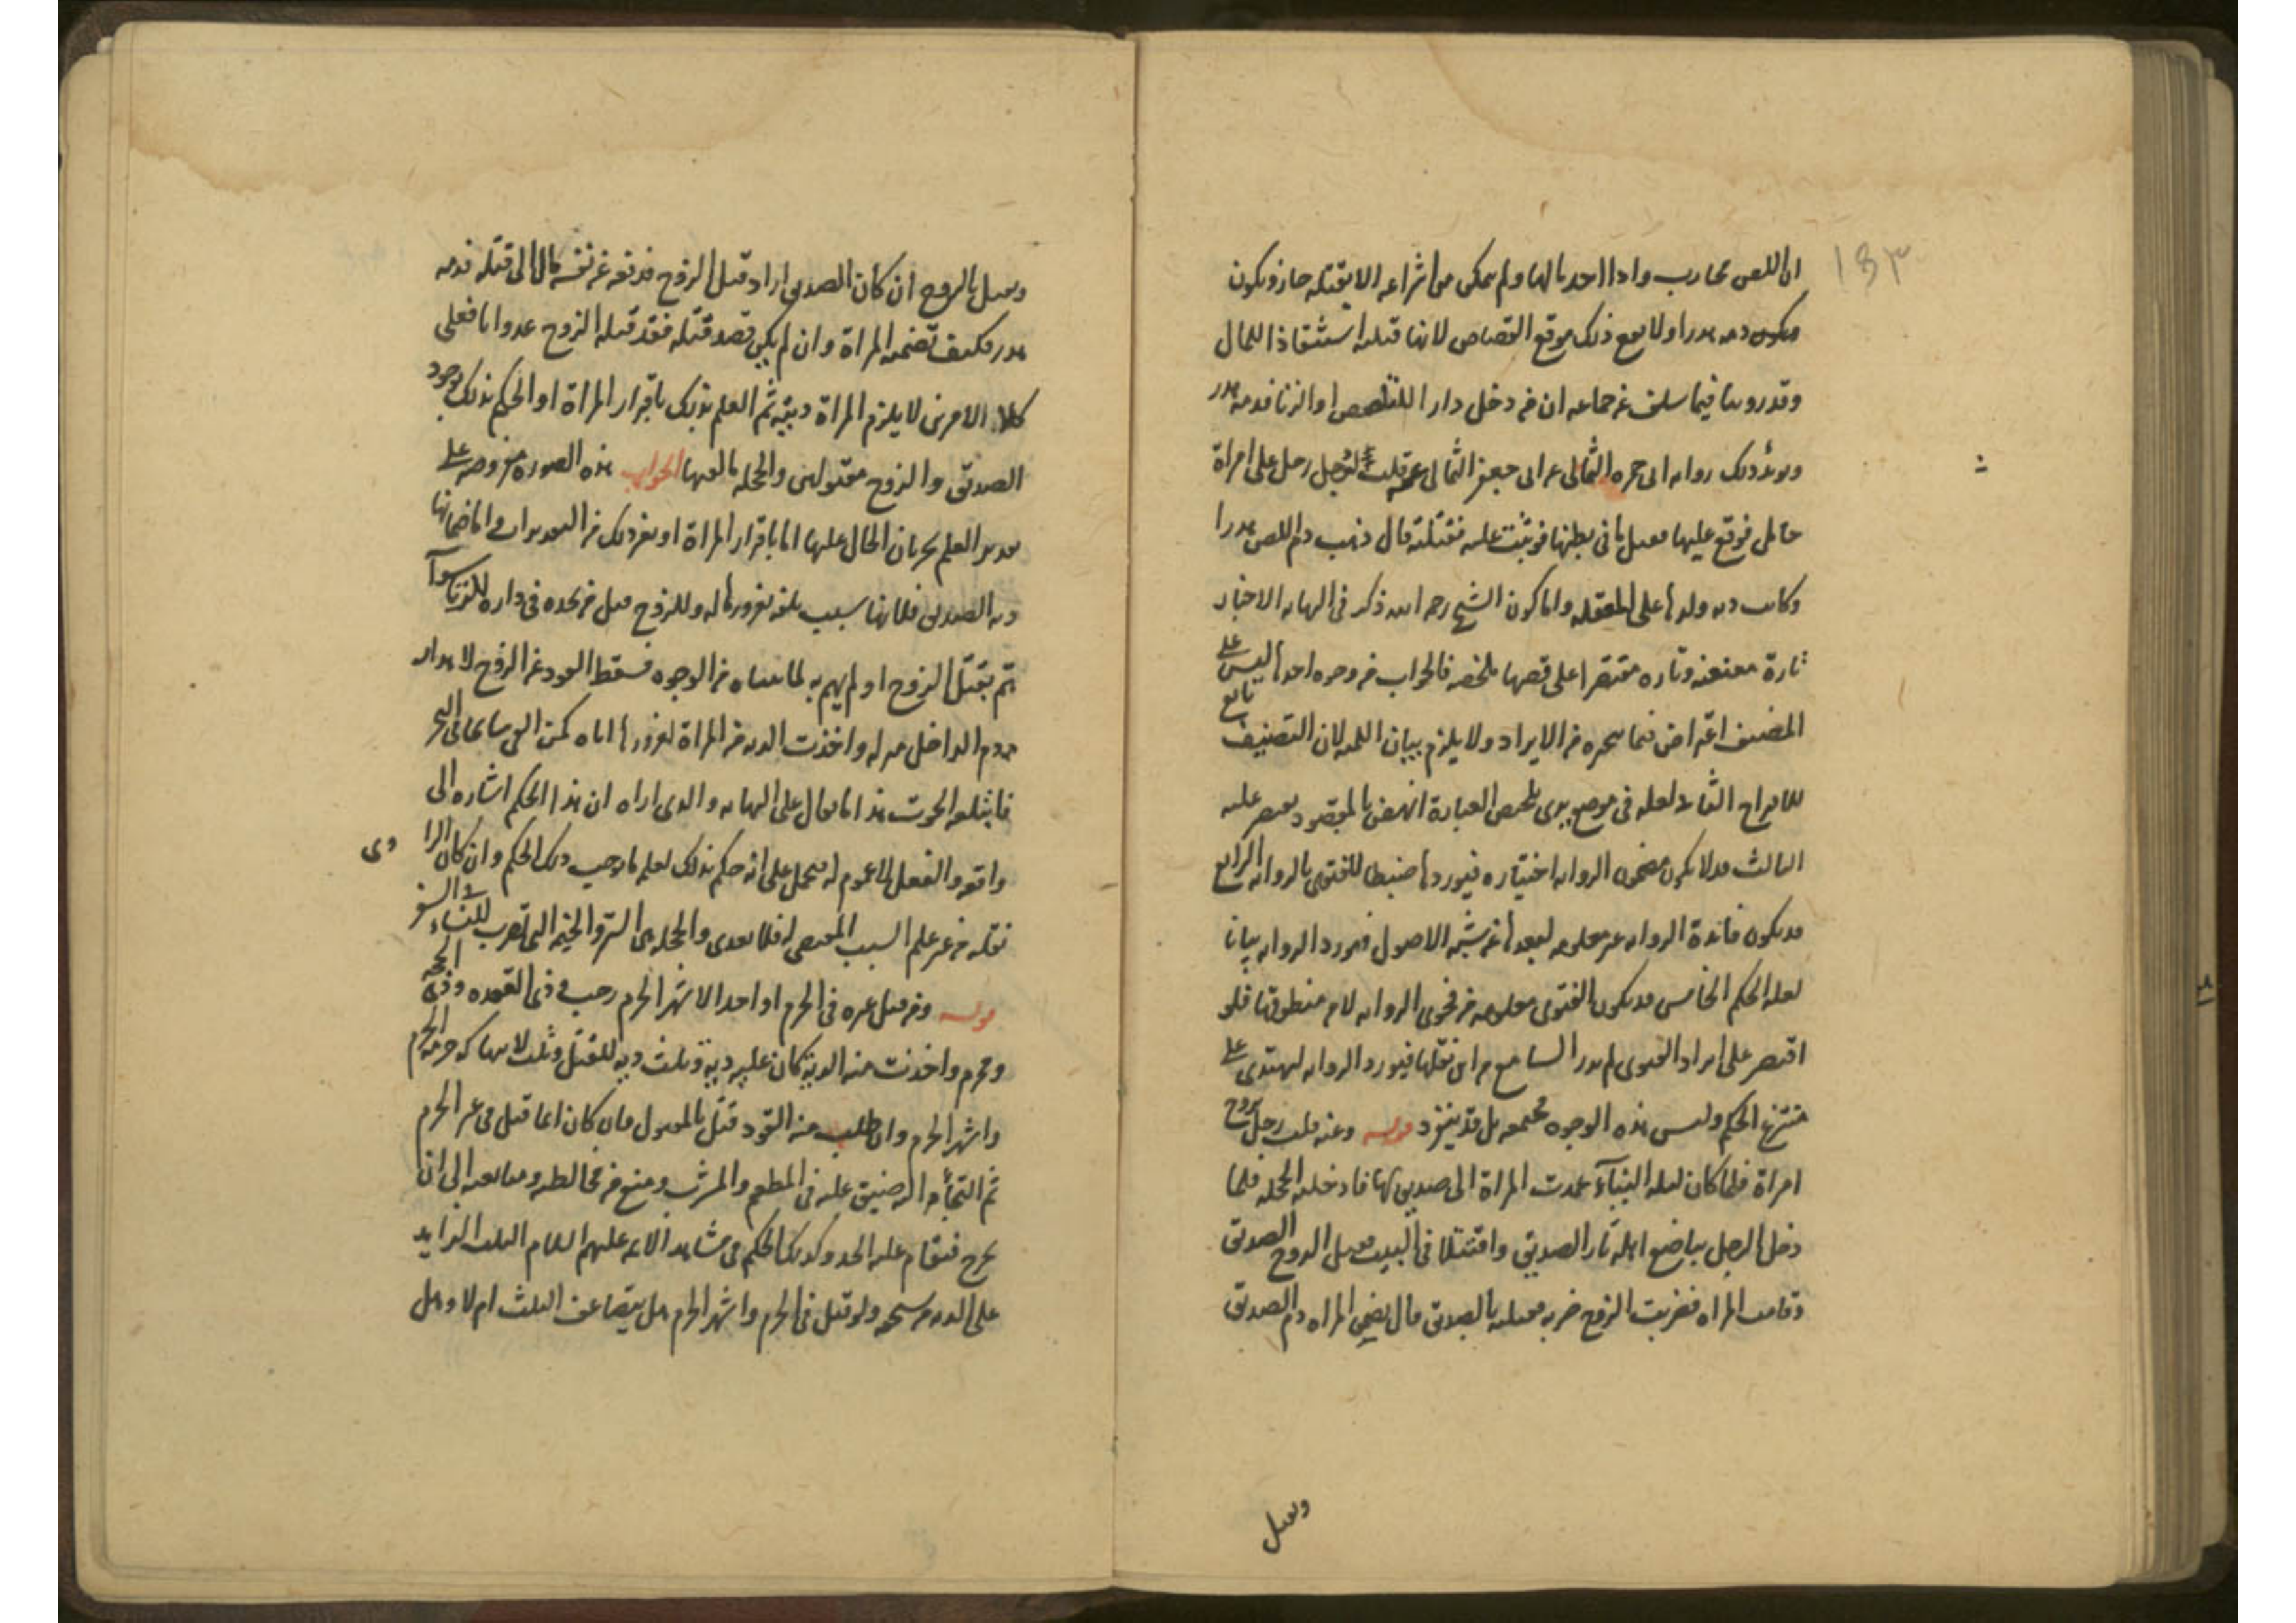 ١٥٣
ان اللص محارب واذا اخذ مالها ولم يمكن من انتزاعه الا بقتله جاز ويكون
فيكون دمه هدرا ولا يقع ذلك موقع القصاص لانها قتلته استنقاذا للمال
وقد روينا فيما سلف عن جماعه ان من دخل دارا للتلصص او الزنا فدمه هدر
ويؤيد ذلك روايه ابى حمزه الثمالى عن ابى جعفر قلت رجل على امراة
حامل فوقع عليها فقتل ما فى بطنها فوثبت عليه فقتلته قال ذهب دم اللص هدرا
وكانت ديه ولدها على المعقله واما كون الشيخ رحمه الله ذكر فى النهايه الاخبار
تارة معنعنه وتاره مقتصرا على قصها ملخصه فالجواب من وجوه احدها ليس على
المصنف اعتراض فيما يتحره من الايراد ولا يلزم بيان اللميه لان التصنيف تابع
للاقتراح الثانى لعله فى موضع يرى تلخيص العبارة انهض بالمقصود فيقتصر عليه
الثالث قد لا يكون مضمون الروايه اختياره فيوردها ضبطا للفتوى بالروايه الرابع
قد يكون فائدة الروايه غير معلومه لبعدها عن شبه الاصول فيورد الروايه بيانا
لعله الحكم الخامس قد يكون الفتوى معلومه من فحوى الروايه لا من منطوقها فلو
اقتصر على ايراد الفتوى لم يدر السامع من اين نقلها فيورد الروايه ليهتدى على
منتزع الحكم وليس هذه الوجوه مجتمعه بل قد ينفرد قوله وعنه قلت رجل تزوج
امراة فلما كان ليله البناء عمدت المراة الى صديق لها فادخلته الحجله فلما
دخل الرجل يباضع اهله ثار الصديق واقتتلا فى البيت فقتل الزوج الصديق
وقامت المراه فضربت الزوج ضربه فقتلته بالصديق قال تضمن المراه دم الصديق
وتقتل
وتقتل بالزوج ان كان الصديق اراد قتل الزوج فدفعه عن نفسه مال الى قتله فدمه
هدر فكيف تضمنه المراة وان لم يكن قصد قتله فقد قتله الزوج عدوانا فعلى
كلا الامرين لا يلزم المراة ديته ثم العلم بذلك باقرار المراة او الحكم بذلك بوجود
الصديق والزوج مقتولين والحجله ما لغتها الجواب هذه الصوره مفروضه على
تقدير العلم بجريان الحال عليها اما باقرار المراة او بغير ذلك من التقديرات واما ضمانها
ديه الصديق فلانها سبب تلفه بغرورها له وللزوج قتل من يجده فى داره للزنا سوآ
هم بقتل الزوج او لم يهم به لما بيناه من الوجوه فسقط القود عن الزوج لاهدار
دم الداخل منزله واخذت الديه من المراة لغرورها اياه كمن القى سابحا فى البحر
فابتلعه الحوت هذا ما يقال على النهايه والذى اراه ان هذا الحكم اشاره الى
واقعه والفعل لا عموم له فيحمل على انه حكم بذلك لعلمه بما يوجب ذلك الحكم وان كان الراوى
نقله من غير علم السبب المقتضى له فلا يتعدى والحجله هى الستر والخيمه التى تضرب للنساء فى السفر
قوله ومن قتل غيره فى الحرم او احد الاشهر الحرم رجب وذى القعده وذى الحجه
ومحرم واخذت منه الدية كان عليه دية وثلث ديه للقتل وثلث لانتهاكه حرمه الحرم
واشهر الحرم وان طلب منه القود قتل بالمقتول فان كان انما قتل فى غير الحرم
ثم التجأ اليه ضيق عليه فى المطعم والمشرب ومنع من مخالطته ومبايعته الى ان
يخرج فيقام عليه الحد وكذلك الحكم فى مشاهد الائمه عليهم السلام الثلث الزايد
على الديه من يستحقه ولو قتل فى الحرم واشهر الحرم هل يتضاعف الثلث ام لا وهل